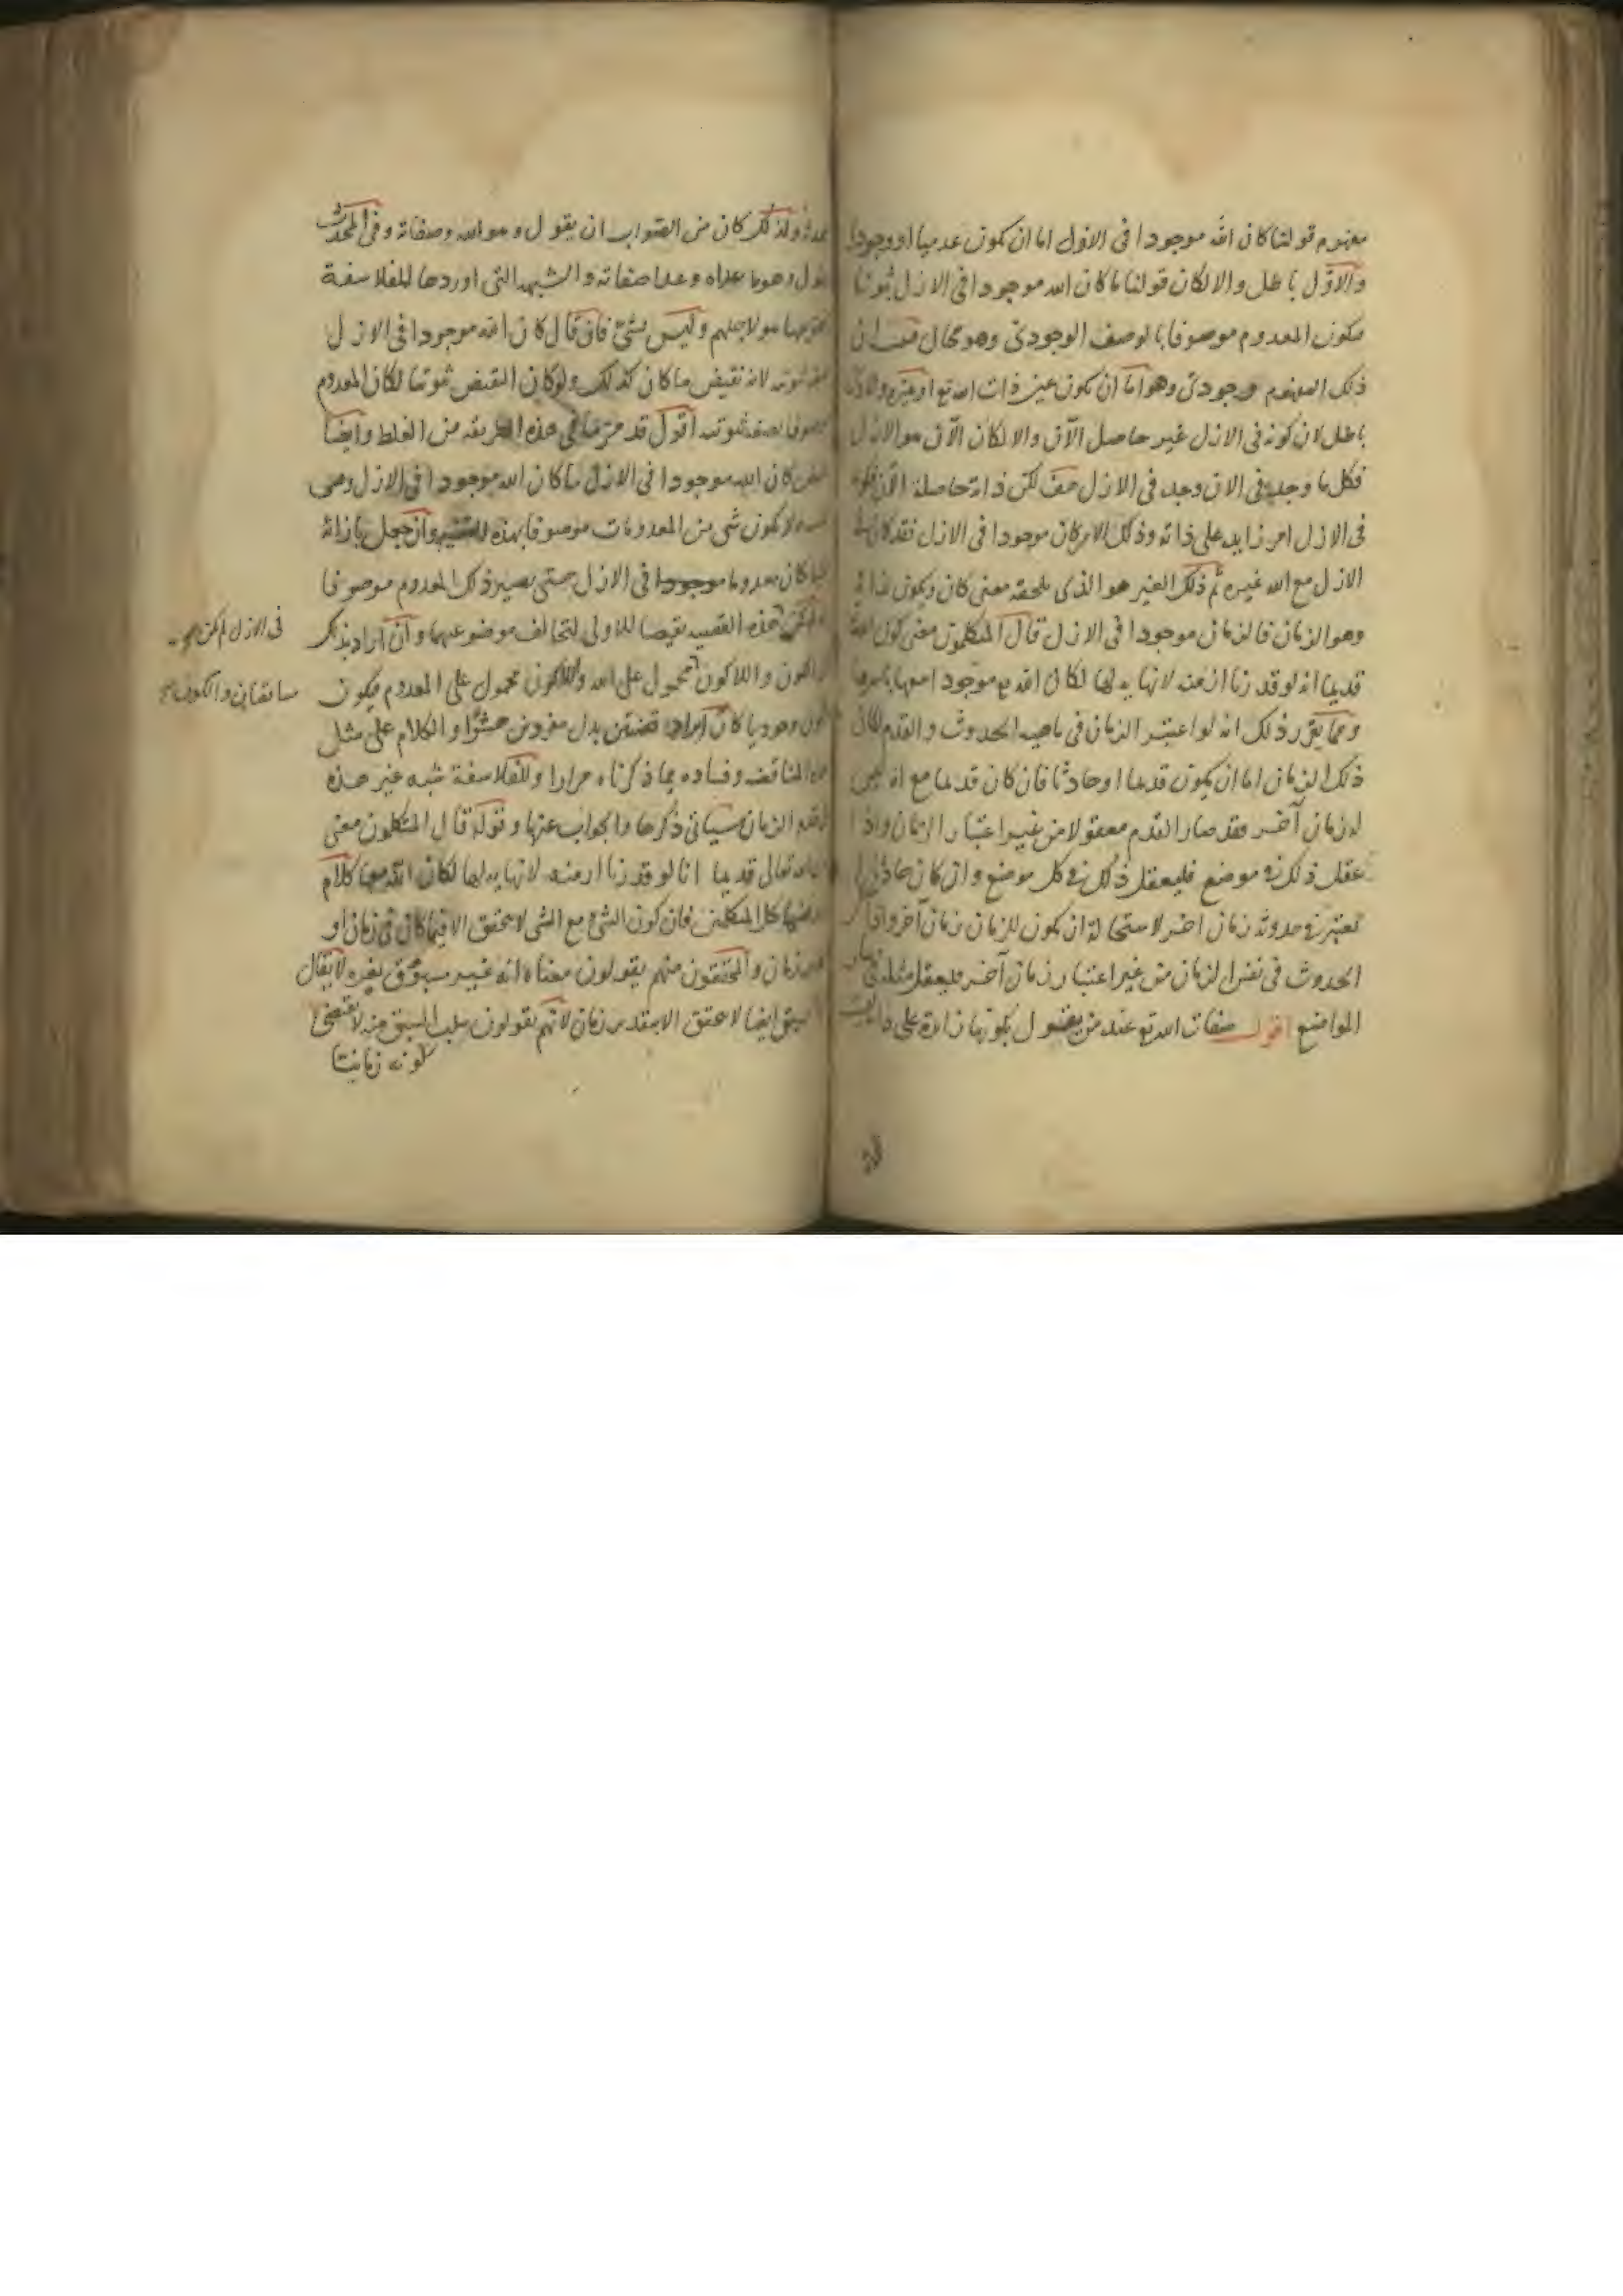 مفهوم قولنا كان الله موجودا فى الازل اما ان يكون عدميا او وجوديا
والاول باطل والا لكان قولنا ما كان الله موجودا فى الازل ثبوتيا
فيكون المعدوم موصوفا بالوصف الوجودى وهو محال فثبت ان
ذلك المفهوم وجودى وهو اما ان يكون عين ذات الله تع او غيره والاول
باطل لان كونه فى الازل غير حاصل الآن والا لكان الآن هو الازل
فكل ما وجد فى الآن وجد فى الازل هف لكن ذاته حاصلة الآن
فى الازل امر زايد على ذاته وذلك الامر كان موجودا فى الازل فقد كان فى
الازل مع الله غيره ثم ذلك الغير هو الذى يلحقه معنى كان ويكون لذاته
وهو الزمان فالزمان موجود ا فى الازل قال المتكلمون معنى كون الله
قديما انه لو قدرنا ازمنة لا نهاية لها لكان الله تع موجودا معها باسرها
ومما يقرر ذلك انه لو اعتبر الزمان فى ماهية الحدوث والقدم لكان
ذلك الزمان اما ان يكون قديما او حادثا فان كان قديما مع انه ليس
له زمان آخر فقد صار القدم معقولا من غير اعتبار الزمان واذا
عقل ذلك فى موضع فليعقل ذلك فى كل موضع وان كان حادثا لم
يعتبر فى حدوثه زمان اخر لاستحالة ان يكون للزمان زمان آخر واذا
الحدوث فى نفس الزمان من غير اعتبار زمان آخر فليعقل مثله فى
المواضع اقول صفات الله تع عند من يقول بكونها زائدة على ذاته ليست
محدثة ولذلك كان من الصواب ان يقول وهو الله وصفاته وفى المحدث
يقول وهو ما عداه وعدا صفاته والشبهة التى اوردها للفلاسفة
هو لاجلهم وليس بشئ فان قال كان الله موجودا فى الازل
ثبوتية لانه نقيض ما كان كذلك ولو كان النقيض ثبوتيا لكان المعدوم
موصوفا بصفة ثبوتية اقول قد مر ما فى هذه الطريقه من الغلط وايضا
نقيض كان الله موجودا فى الازل ما كان الله موجودا فى الازل وهى
لا يكون شى من المعدومات موصوفا بهذه القضية وان جعل بازائه
كان معدوما موجودا فى الازل حتى يصير ذلك المعدوم موصوفا
لم يكن هذه القضيه نقيضا للاولى لتخالف موضوعيهما وان اراد بذلك
فى الازل لم يكن
الكون واللاكون محمول على الله واللاكون محمول على المعدوم فيكون
متناقضان والكون
الكون وجوديا كان ايراد قضيتين بدل مفردين حشوا والكلام على مثل
هذه المناقضة وفساده بما ذكرناه مرارا وللفلاسفة شبه غير هذه
لقدم الزمان سياتى ذكرها والجواب عنها وقوله قال المتكلمون معنى
كون الله تعالى قديما انا لو قدرنا ازمنة لا نهاية لها لكان الله معها كلام
كل المتكلمين فان كون الشئ مع الشى لا يتحقق الا فيما كان فى زمان او
زمان والمحققون منهم يقولون معناه انه غير مسبوق بغيره لا يقال
السبق ايضا لا يتحقق الا بتقدير زمان لانهم يقولون سلب السبق منه لا يقتضى
كونه زمانيا